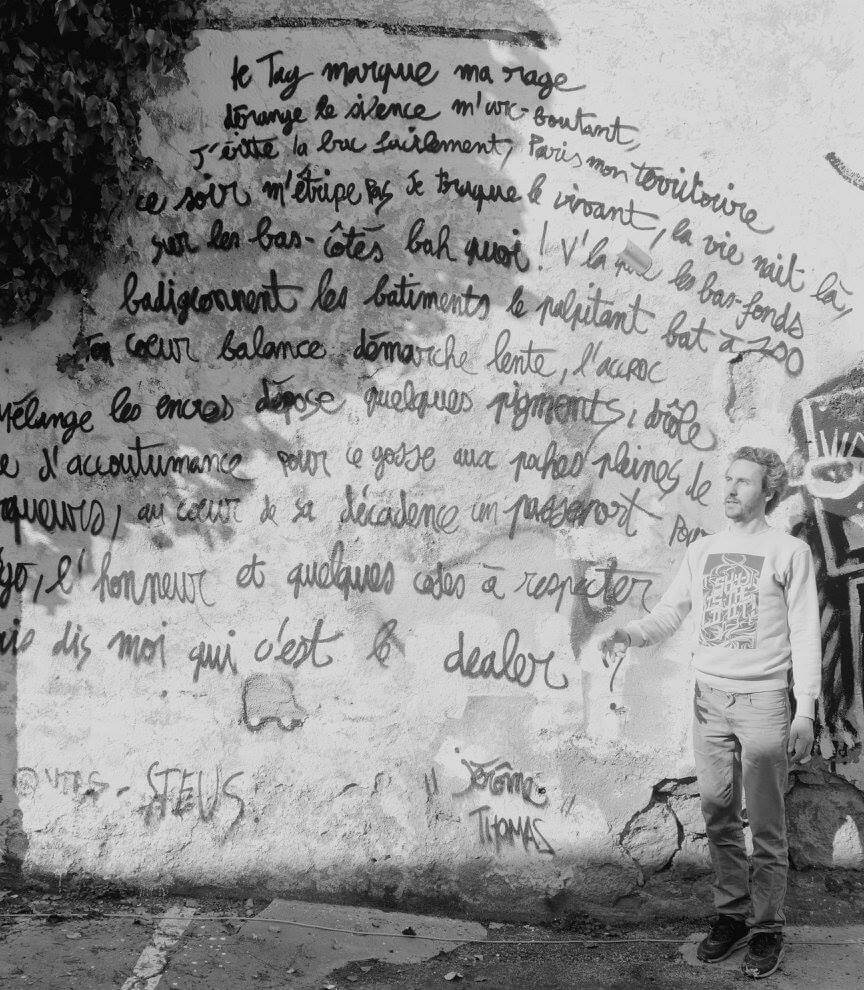 le Tag marque ma rage
dérange le silence m'arc-boutant,
J'évite la bac facilement, Paris mon territoire
ce soir m'étripe pas Je truque le vivant, la vie nait là,
sur les bas-côtés bah quoi ! V'la que les bas-fonds
badigeonnent les batiments le palpitant bat à 200
Ton coeur balance démarche lente, l'accroc
Mélange les encres dépose quelques pigments, drôle
d'accoutumance pour ce gosse aux poches pleines de
queurs, au coeur de sa décadence un passeport pour
l'honneur et quelques codes à respecter
dis moi qui c'est le dealer ?
STEUS
" Jérôme
THOMAS "